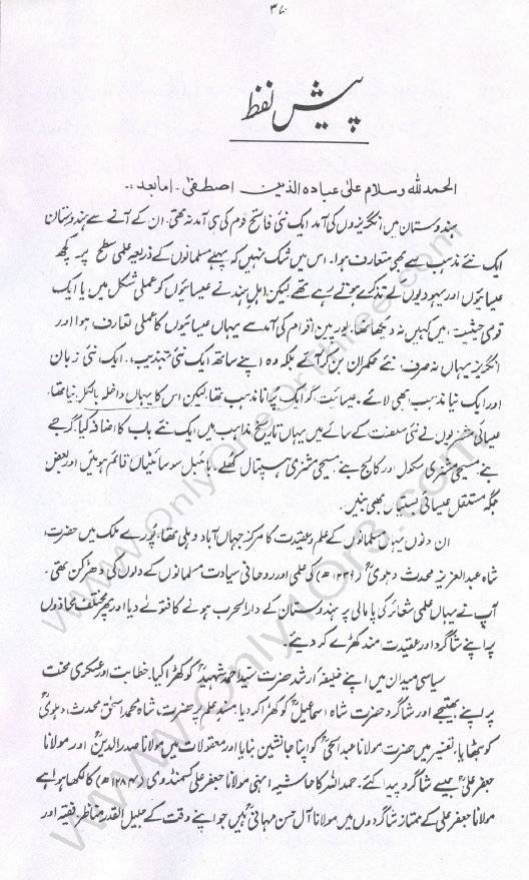 ۳۷
پیش لفظ
الحمدللہ وسلام علیٰ عبادہ الذین اصطفیٰ۔ اما بعد :.
ہندوستان میں انگریزوں کی آمد ایک نئی فاتح قوم کی ہی آمد نہ تھی۔ ان کے آنے سے ہندوستان
ایک نئے مذہب سے بھی متعارف ہوا۔ اس میں شک نہیں کہ پہلے مسلمانوں کے ذریعہ علمی سطح پر کچھ
عیسائیوں اور یہودیوں کے تذکرے ہوتے رہے تھے لیکن اہل ہند نے عیسائیوں کو عملی شکل میں یا ایک
قومی حیثیت میں کہیں نہ دیکھا تھا۔ یورپین اقوام کی آمد سے یہاں عیسائیوں کا عملی تعارف ہوا اور
انگریز یہاں نہ صرف نئے حکمران بن کر آئے بلکہ وہ اپنے ساتھ ایک نئی تہذیب، ایک نئی زبان
اور ایک نیا مذہب بھی لائے۔ عیسائیت گو ایک پرانا مذہب تھا لیکن اس کا یہاں داخلہ بالکل نیا تھا۔
عیسائی مشنریوں نے نئی سلطنت کے سائے میں یہاں تاریخ مذاہب میں ایک نئے باب کا اضافہ کیا۔ گرجے
بنے مسیحی مشنری سکول اور کالج بنے مسیحی مشنری ہسپتال کھلے۔ بائبل سوسائٹیاں قائم ہوئیں اور بعض
جگہ مستقل عیسائی بستیاں بھی بنیں۔
ان دنوں یہاں مسلمانوں کے علم و عقیدت کا مرکز جہاں آباد دہلی تھا۔ پورے ملک میں حضرت
شاہ عبدالعزیز محدث دہلویؒ (۱۲۳۹ھ) کی علمی اور روحانی سیادت مسلمانوں کے دلوں کی دھڑکن تھی۔
آپ نے یہاں علمی شعائر کی پامالی پر ہندوستان کے دارالحرب ہونے کا فتویٰ دیا اور پھر مختلف محاذوں
پر اپنے شاگرد اور عقیدت مند کھڑے کر دیئے۔
سیاسی میدان میں اپنے خلیفہ ارشد حضرت سید احمد شہیدؒ کو کھڑا کیا۔ خطابت اور عسکری محنت
پر اپنے بھتیجے اور شاگرد حضرت شاہ اسماعیلؒ کو کھڑا کر دیا۔ مسند علم پر حضرت شاہ محمد اسحٰق محدث دہلویؒ
کو بٹھایا۔ تفسیر میں حضرت مولانا عبدالحیؒ کو اپنا جانشین بنایا اور معقولات میں مولانا صدرالدینؒ اور مولانا
جعفر علیؒ جیسے شاگرد پیدا کئے۔ حمداللہ کا حاشیہ انہی مولانا جعفر علی کسمنڈوی (۱۲۸۴ھ) کا لکھا ہوا ہے
مولانا جعفر علی کے ممتاز شاگردوں میں مولانا آل حسن مہانی ہیں جو اپنے وقت کے جلیل القدر مناظر، فقیہ اور
www.OnlyOneOrThree.com
www.Only1Or3.com